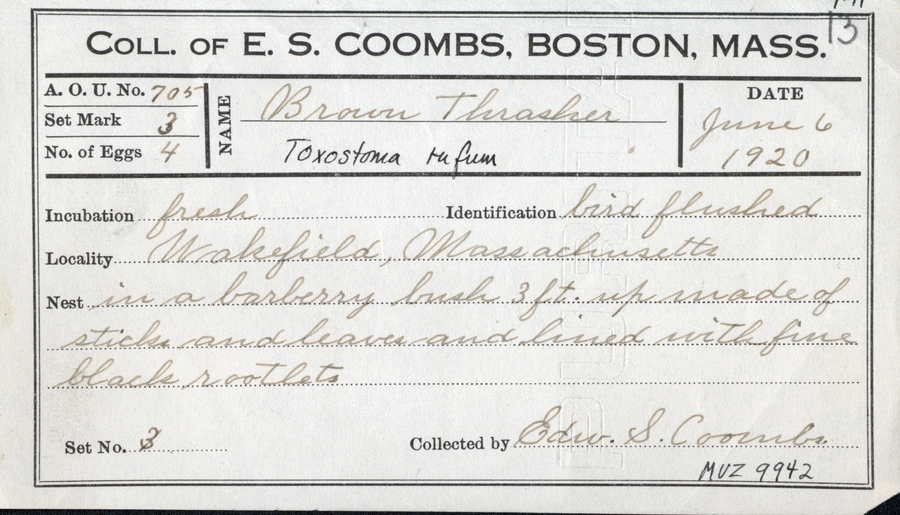 13
COLL. OF E. S. COOMBS, BOSTON, MASS.
A. O. U. No. 705
Set Mark 3
No. of Eggs 4
NAME
Brown Thrasher
Toxostoma rufum
DATE
June 6
1920
Incubation fresh Identification bird flushed
Locality Wakefield, Massachusetts
Nest in a barberry bush 3 ft. up made of
sticks and leaves and lined with fine
black rootlets
Set No. 3 Collected by Edw. S. Coombs
MVZ 9942